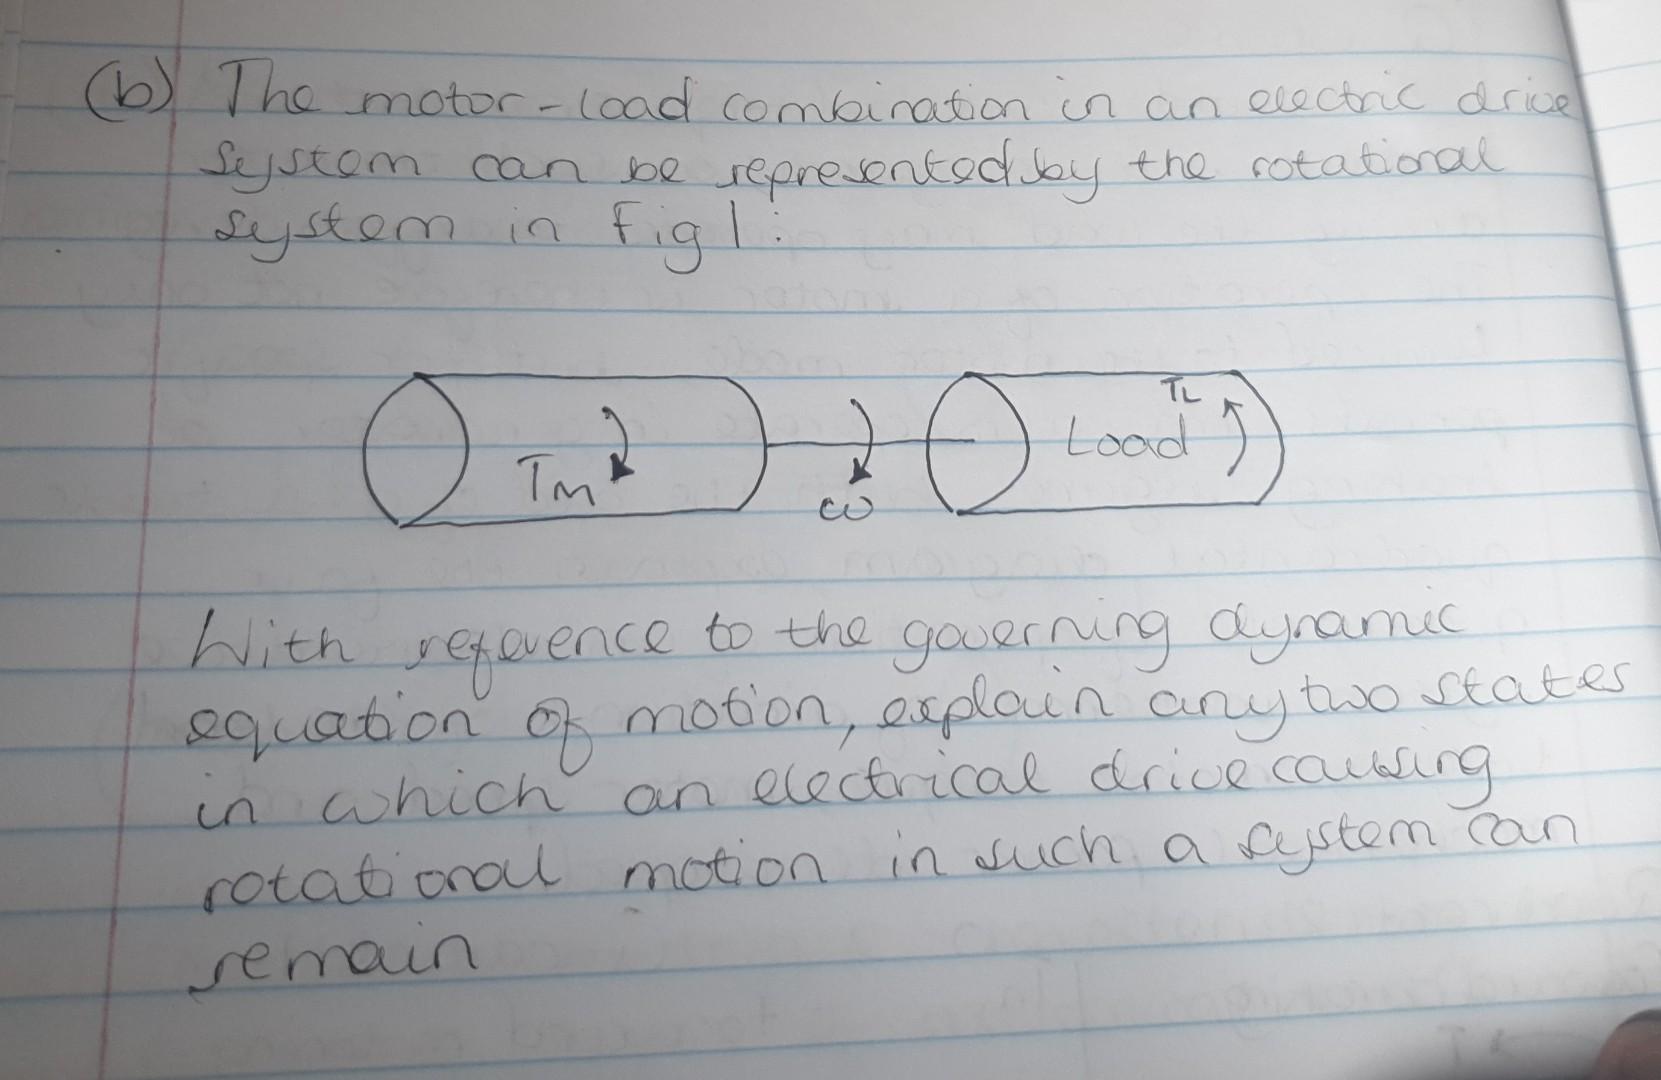 (b) The motor-load combination in an electric drive
system can be represented by the rotational
system in Fig 1:
TM
ω
Load
TL
With reference to the governing dynamic
equation of motion, explain any two states
in which an electrical drive causing
rotational motion in such a system can
remain